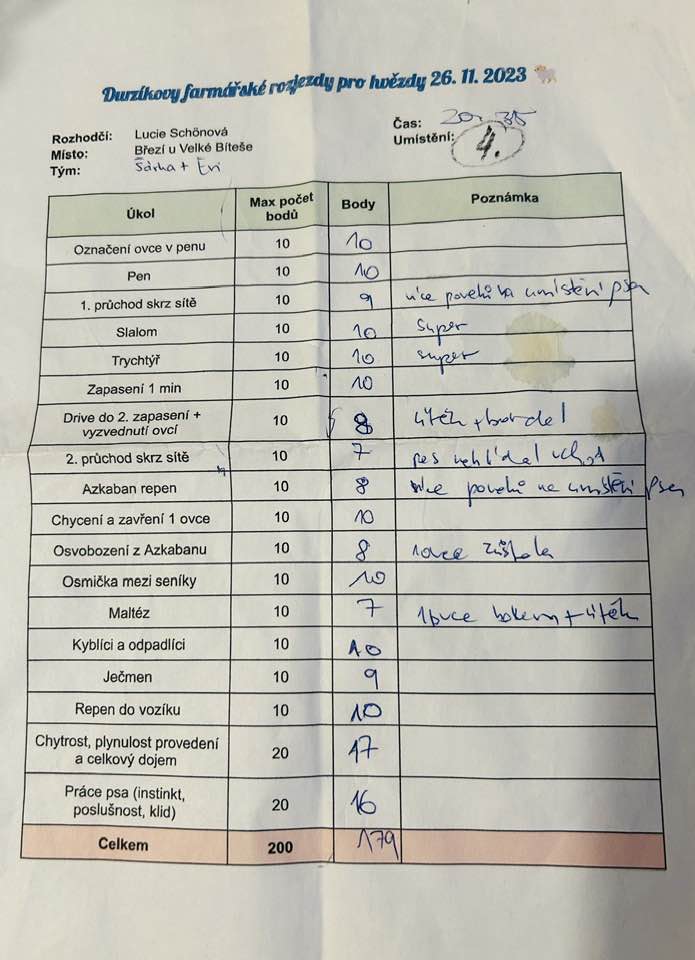 Durzíkovy farmářské rozjezdy pro hvězdy 26. 11. 2023
Rozhodčí: Lucie Schönová
Místo: Březí u Velké Bíteše
Tým: Šárka + Evi
Čas: 20:35
Umístění: 4.
Úkol Max počet bodů Body Poznámka
Označení ovce v penu 10 10
Pen 10 10
1. průchod skrz sítě 10 9 více povelů na umístění psa
Slalom 10 10 super
Trychtýř 10 10 super
Zapasení 1 min 10 10
Drive do 2. zapasení + vyzvednutí ovcí 10 8 útěk + bordel
2. průchod skrz sítě 10 7 pes nehlídal vchod
Azkaban repen 10 8 více povelů na umístění psa
Chycení a zavření 1 ovce 10 10
Osvobození z Azkabanu 10 8 1 ovce zůstala
Osmička mezi seníky 10 10
Maltéz 10 7 1 ovce bokem + útěk
Kyblíci a odpadlíci 10 10
Ječmen 10 9
Repen do vozíku 10 10
Chytrost, plynulost provedení a celkový dojem 20 17
Práce psa (instinkt, poslušnost, klid) 20 16
Celkem 200 179